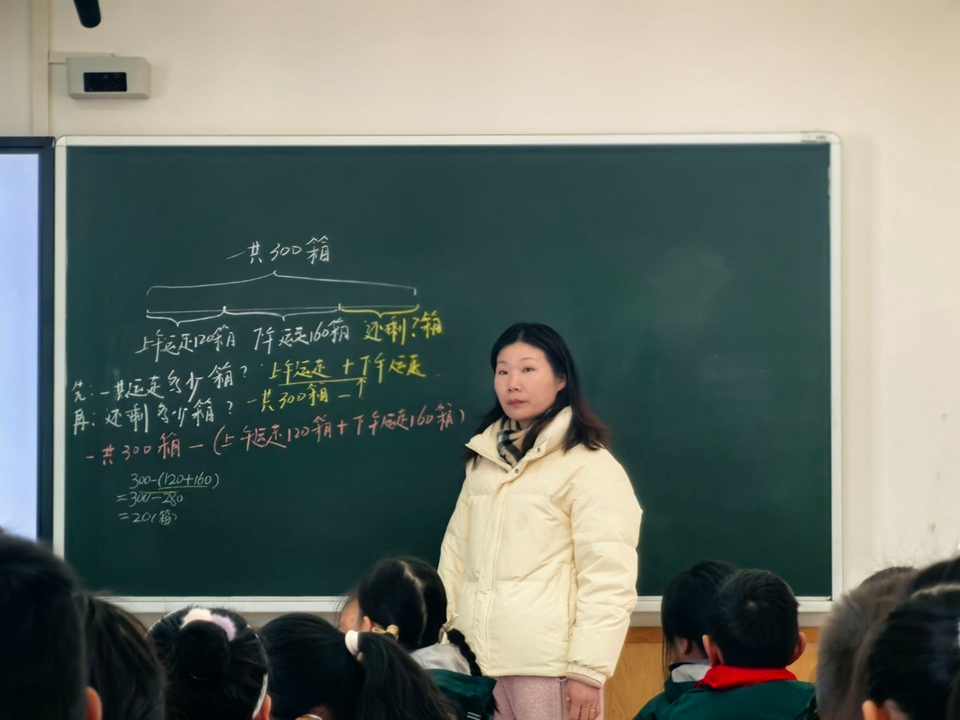 一共300箱
上午运走120箱 下午运走160箱 还剩?箱
先:一共运走多少箱? 上午运走+下午运走
再:还剩多少箱? 一共300箱-↑
一共300箱-(上午运走120箱+下午运走160箱)
300-(120+160)
=300-280
=20(箱)